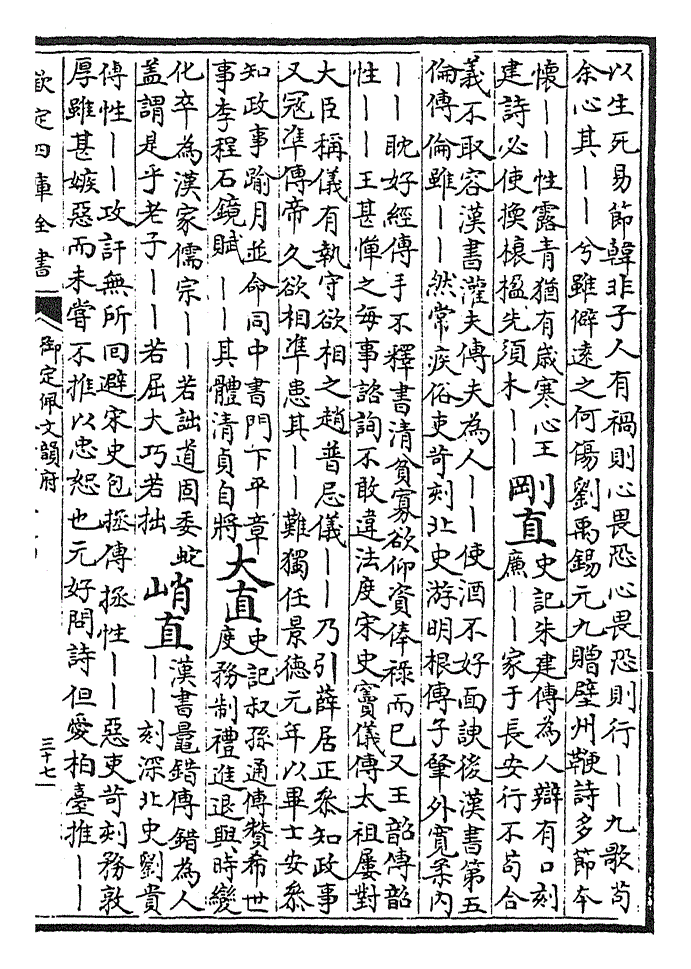 以生死易節韓非子人有禍則心畏恐心畏恐則行丨丨九歌苟
余心其丨丨兮雖僻遠之何傷劉禹錫元九贈璧州鞭詩多節本
懷丨丨性露青猶有歲寒心王
建詩必使換榱楹先須木丨丨
剛直
史記朱建傳為人辯有口刻
廉丨丨家于長安行不苟合
義不取容漢書灌夫傳夫為人丨丨使酒不好面諛後漢書第五
倫傳倫雖丨丨然常疾俗吏苛刻北史游明根傳子肇外寛柔内
丨丨耽好經傳手不釋書清貧寡欲仰資俸祿而已又王韶傳韶
性丨丨王甚憚之每事諮詢不敢違法度宋史竇儀傳太祖屢對
大臣稱儀有執守欲相之趙普忌儀丨丨乃引薛居正叅知政事
又冦凖傳帝久欲相凖患其丨丨難獨任景德元年以畢士安叅
知政事踰月並命同中書門下平章
事李程石鏡賦 丨丨其體清貞自將
大直
史記叔孫通傳贊希世
度務制禮進退與時變
化卒為漢家儒宗丨丨若詘道固委蛇
蓋謂是乎老子丨丨若屈大巧若拙
峭直
漢書鼂錯傳錯為人
丨丨刻深北史劉貴
傳性丨丨攻訐無所回避宋史包拯傳拯性丨丨惡吏苛刻務敦
厚雖甚嫉惡而未嘗不推以忠恕也元好問詩但愛柏臺推丨丨
欽定四庫全書
御定佩文韻府
三十七